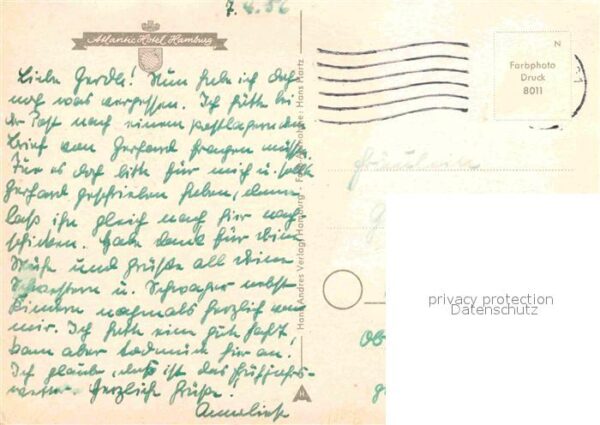 7.4.56
Atlantic Hotel Hamburg
Liebe Gerdle! Nun habe ich doch
noch was vergessen. Ich hätte bei
der Post nach einem postlagernden
Brief von Gerhard fragen müssen.
Tue es doch bitte für mich u. sollte
Gerhard geschrieben haben, dann
laß ihn gleich nach hier nach
schicken. Habe Dank für Deine
Mühe und Grüße all Deine
Schwestern u. Schwager nebst
Kindern nochmals herzlich von
mir. Ich hatte eine gute Fahrt,
kam aber todmüde hier an.
Ich glaube, daß ist das Frühjahrs-
wetter. Herzliche Grüße.
Anneliese
Hans Andres Verlag, Hamburg - Hans Hartz
Farbphoto
Druck
8011
N
Fräulein
privacy protection
Datenschutz